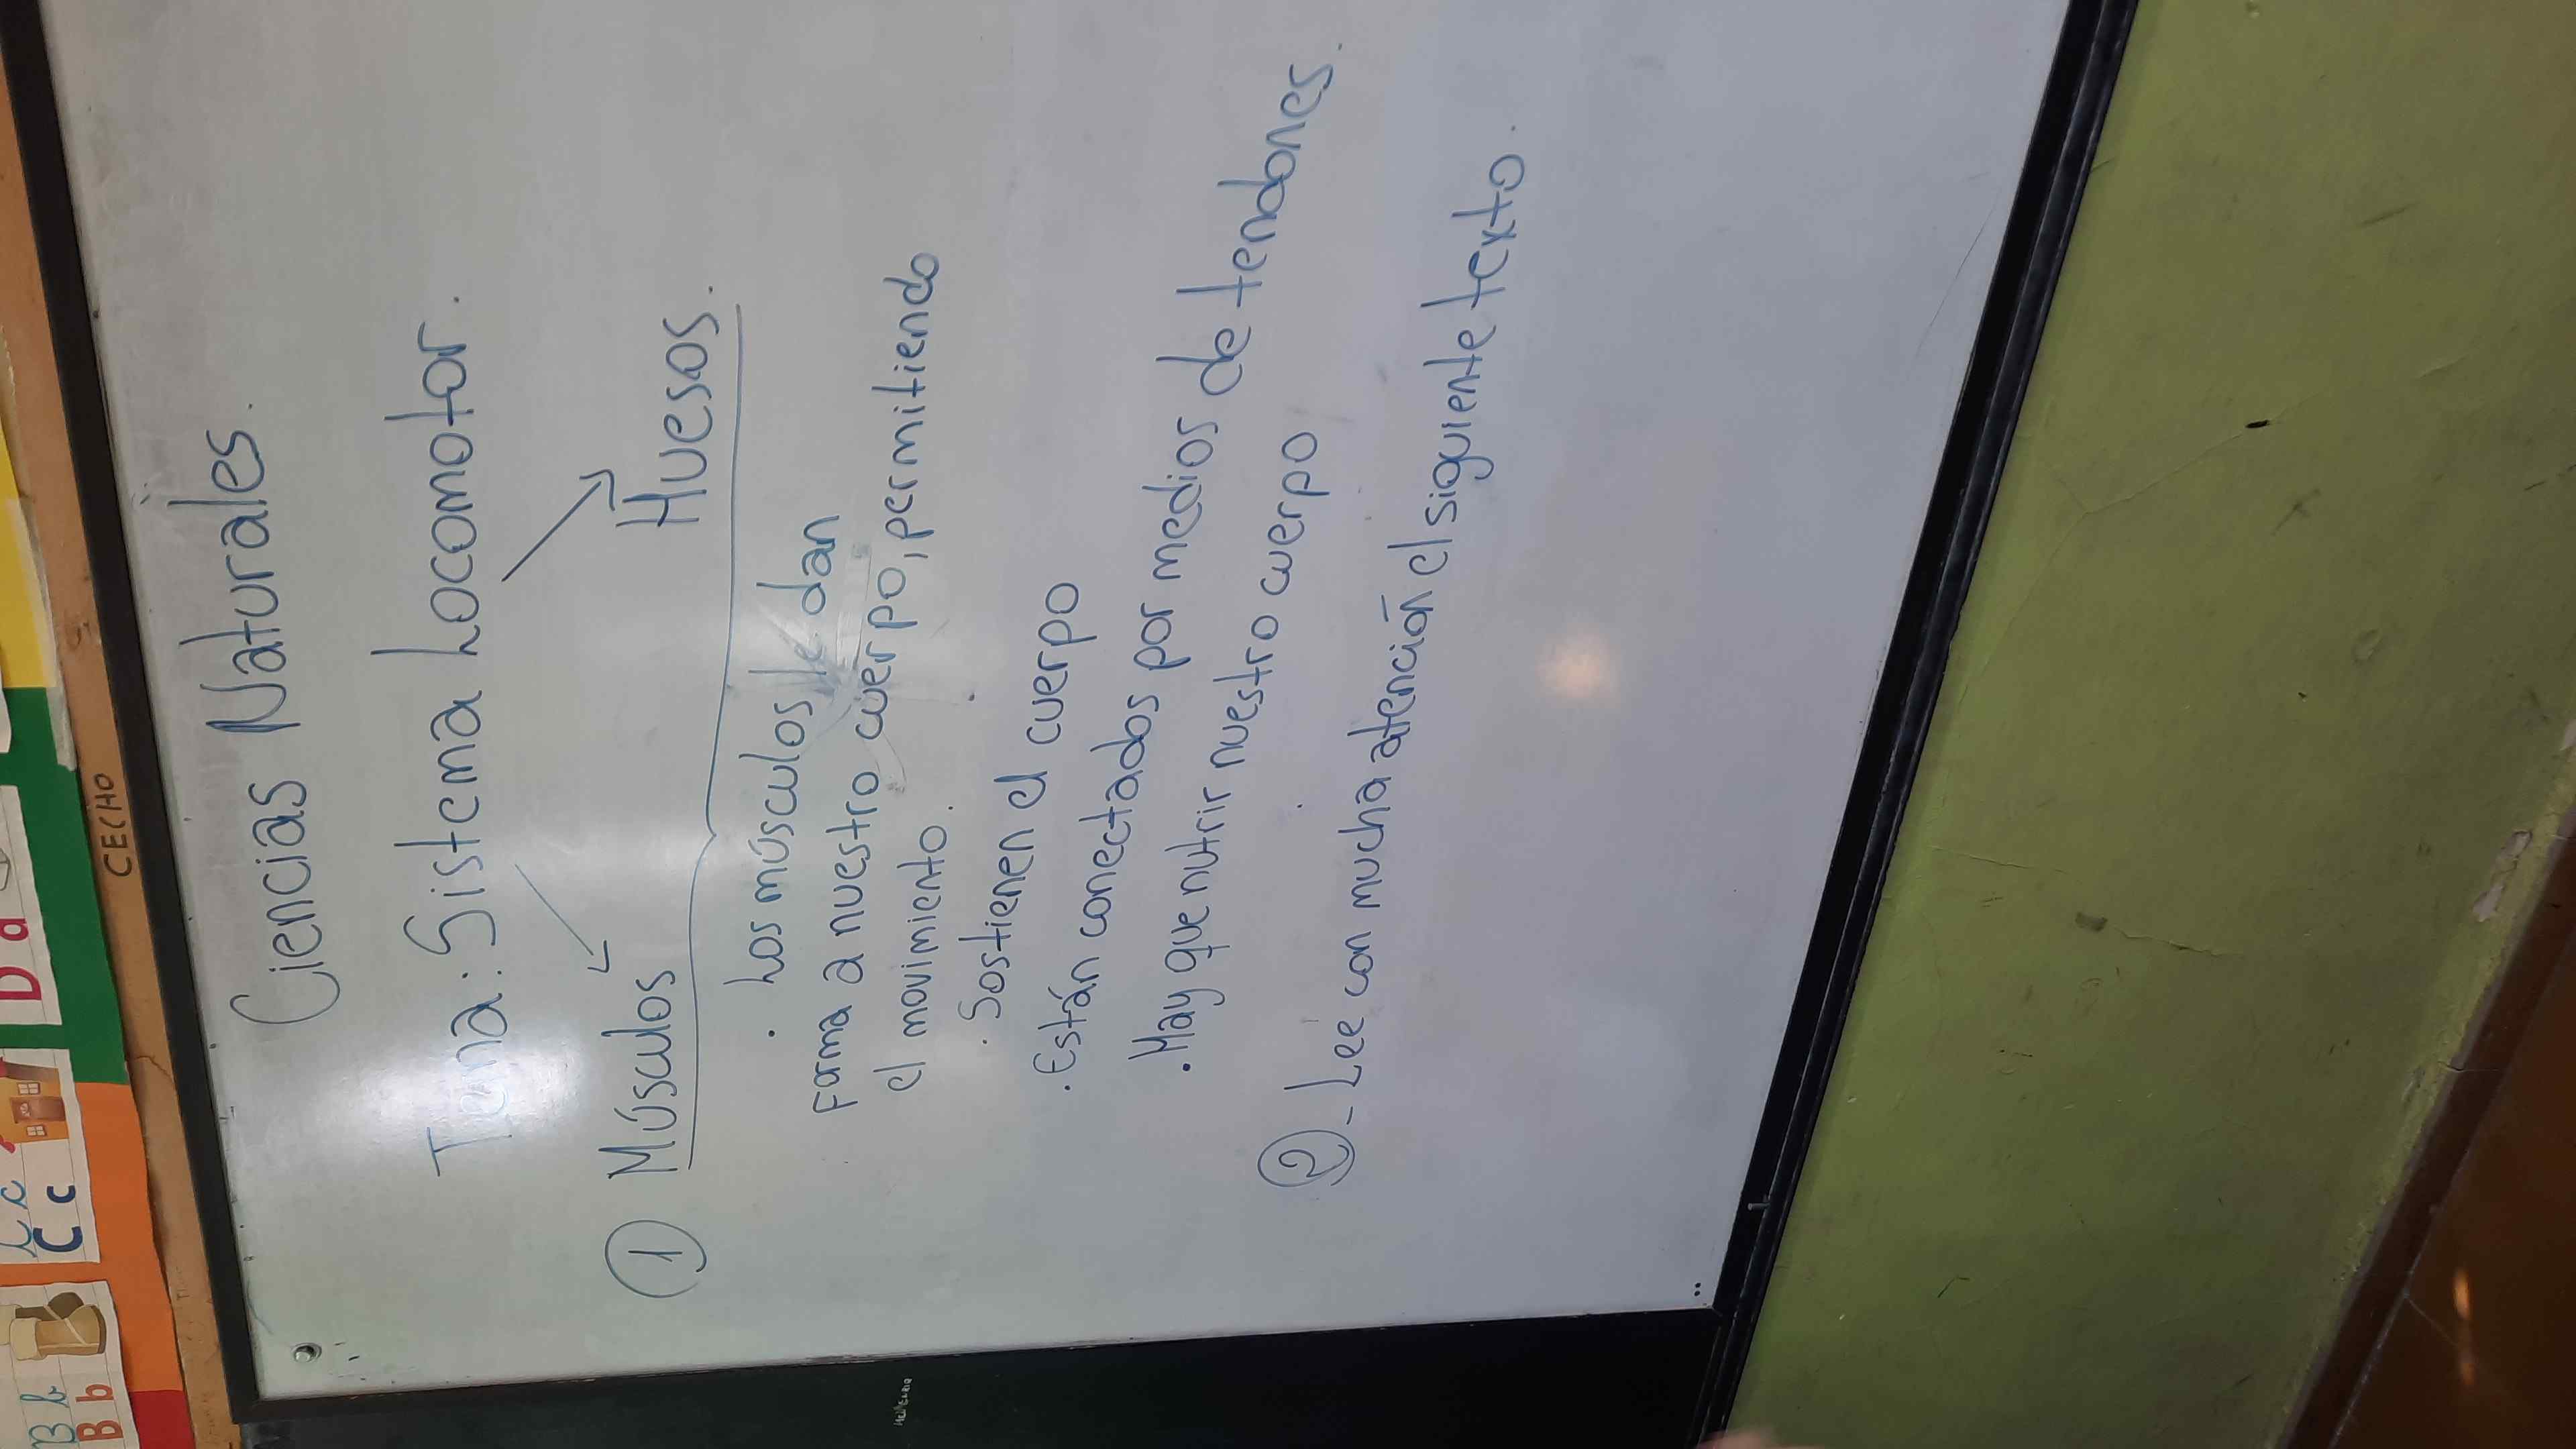 B b
B b
C c
C c
D d
CECHO
Ciencias Naturales.
Tema: Sistema Locomotor.
1 Músculos Huesos.
. Los músculos le dan
forma a nuestro cuerpo, permitiendo
el movimiento.
. Sostienen el cuerpo
. Están conectados por medios de tendones.
. Hay que nutrir nuestro cuerpo
2 - Lee con mucha atención el siguiente texto.